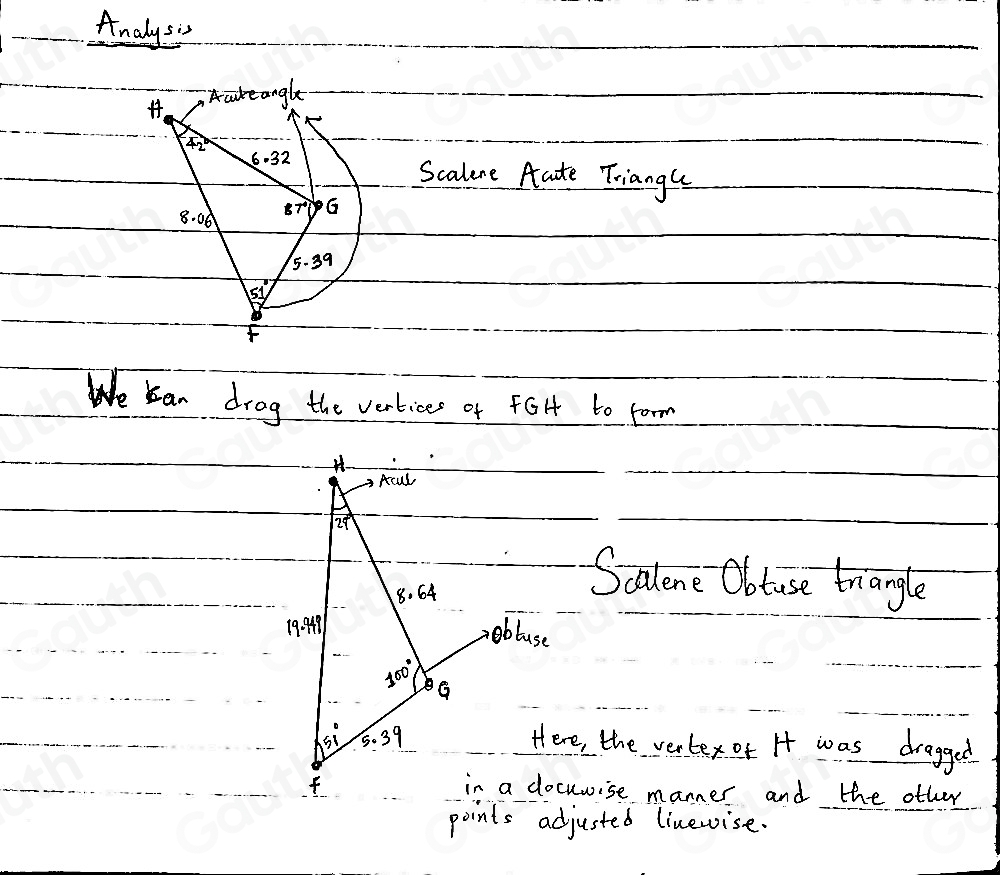 Analysis
H
Acute angle
42°
6.32
Scalene Acute Triangle
8.06
87°
G
5.39
51°
F
We can drag the vertices of FGH to form
H
29°
8.64
Scalene Obtuse triangle
obtuse
100°
G
51°
5.39
F
Here, the vertex of H was dragged
in a clockwise manner and the other
points adjusted likewise.